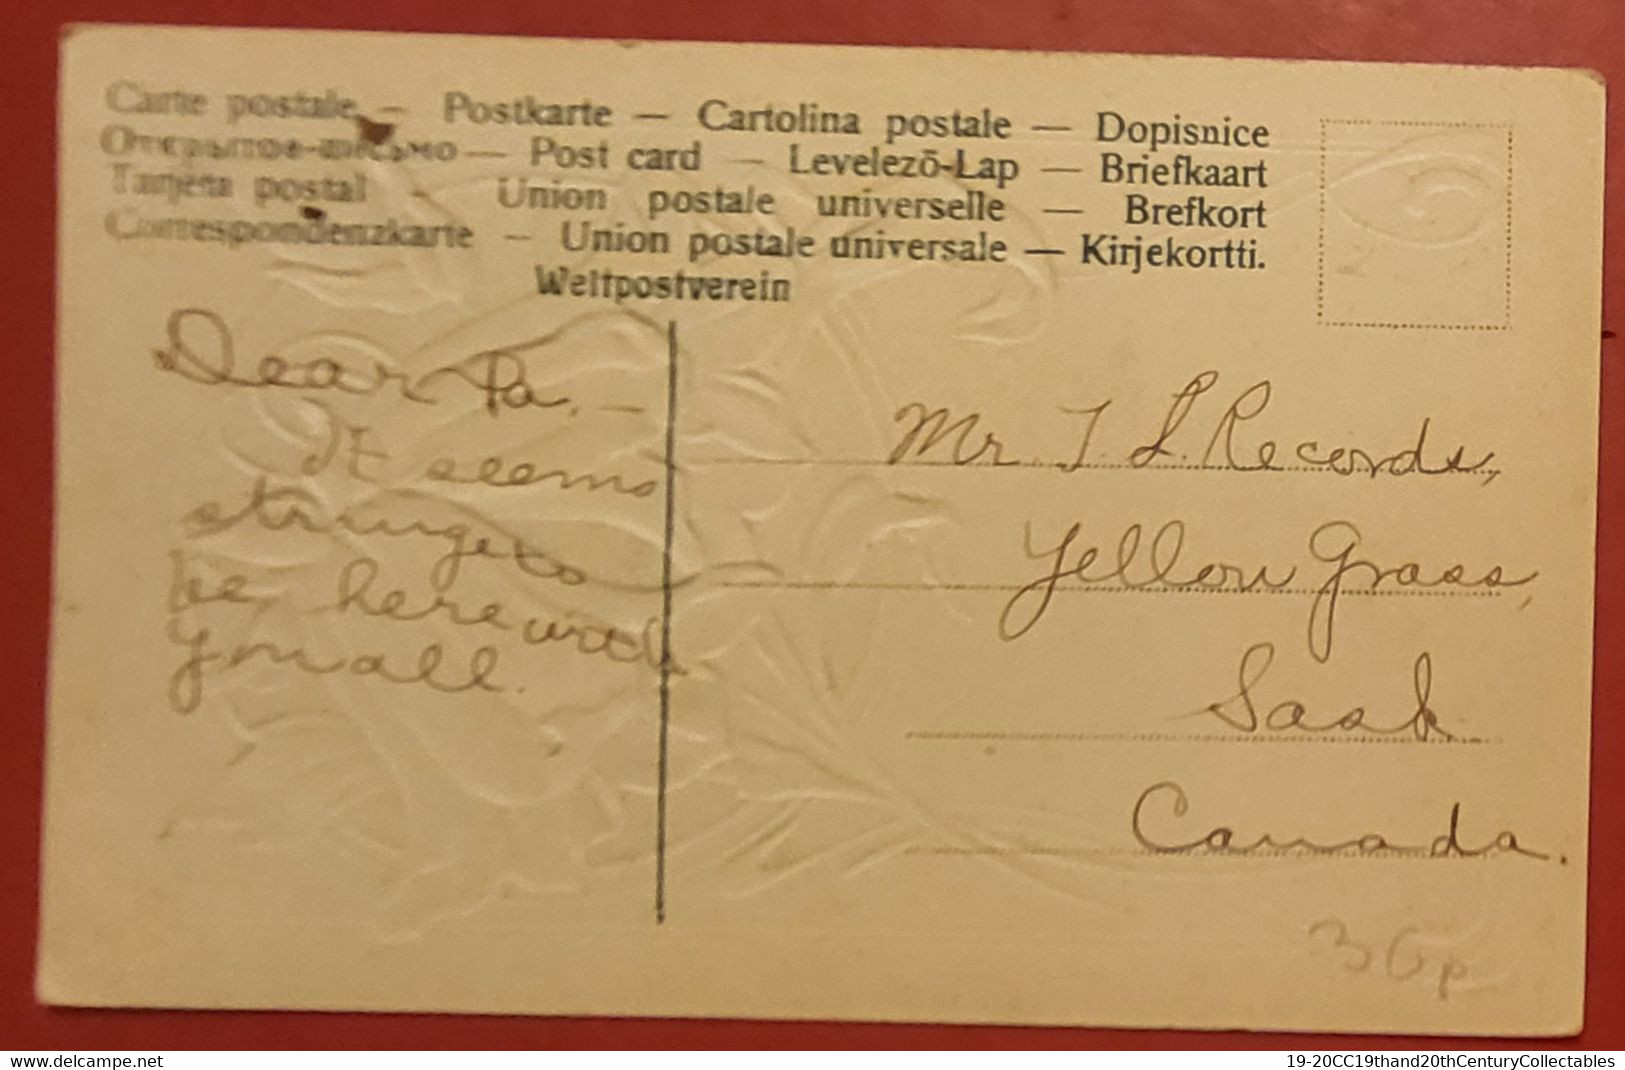 Carte postale — Postkarte — Cartolina postale — Dopisnice
Открытое-письмо — Post card — Levelezō-Lap — Briefkaart
Tarjeta postal — Union postale universelle — Brefkort
Correspondenzkarte — Union postale universale — Kirjekortti.
Weltpostverein
Dear Pa. —
It seems
strange to
be here with
you all.
Mr T. L. Records,
Yellow Grass,
Sask
Canada.
36p
www.delcampe.net
19-20CC19thand20thCenturyCollectables